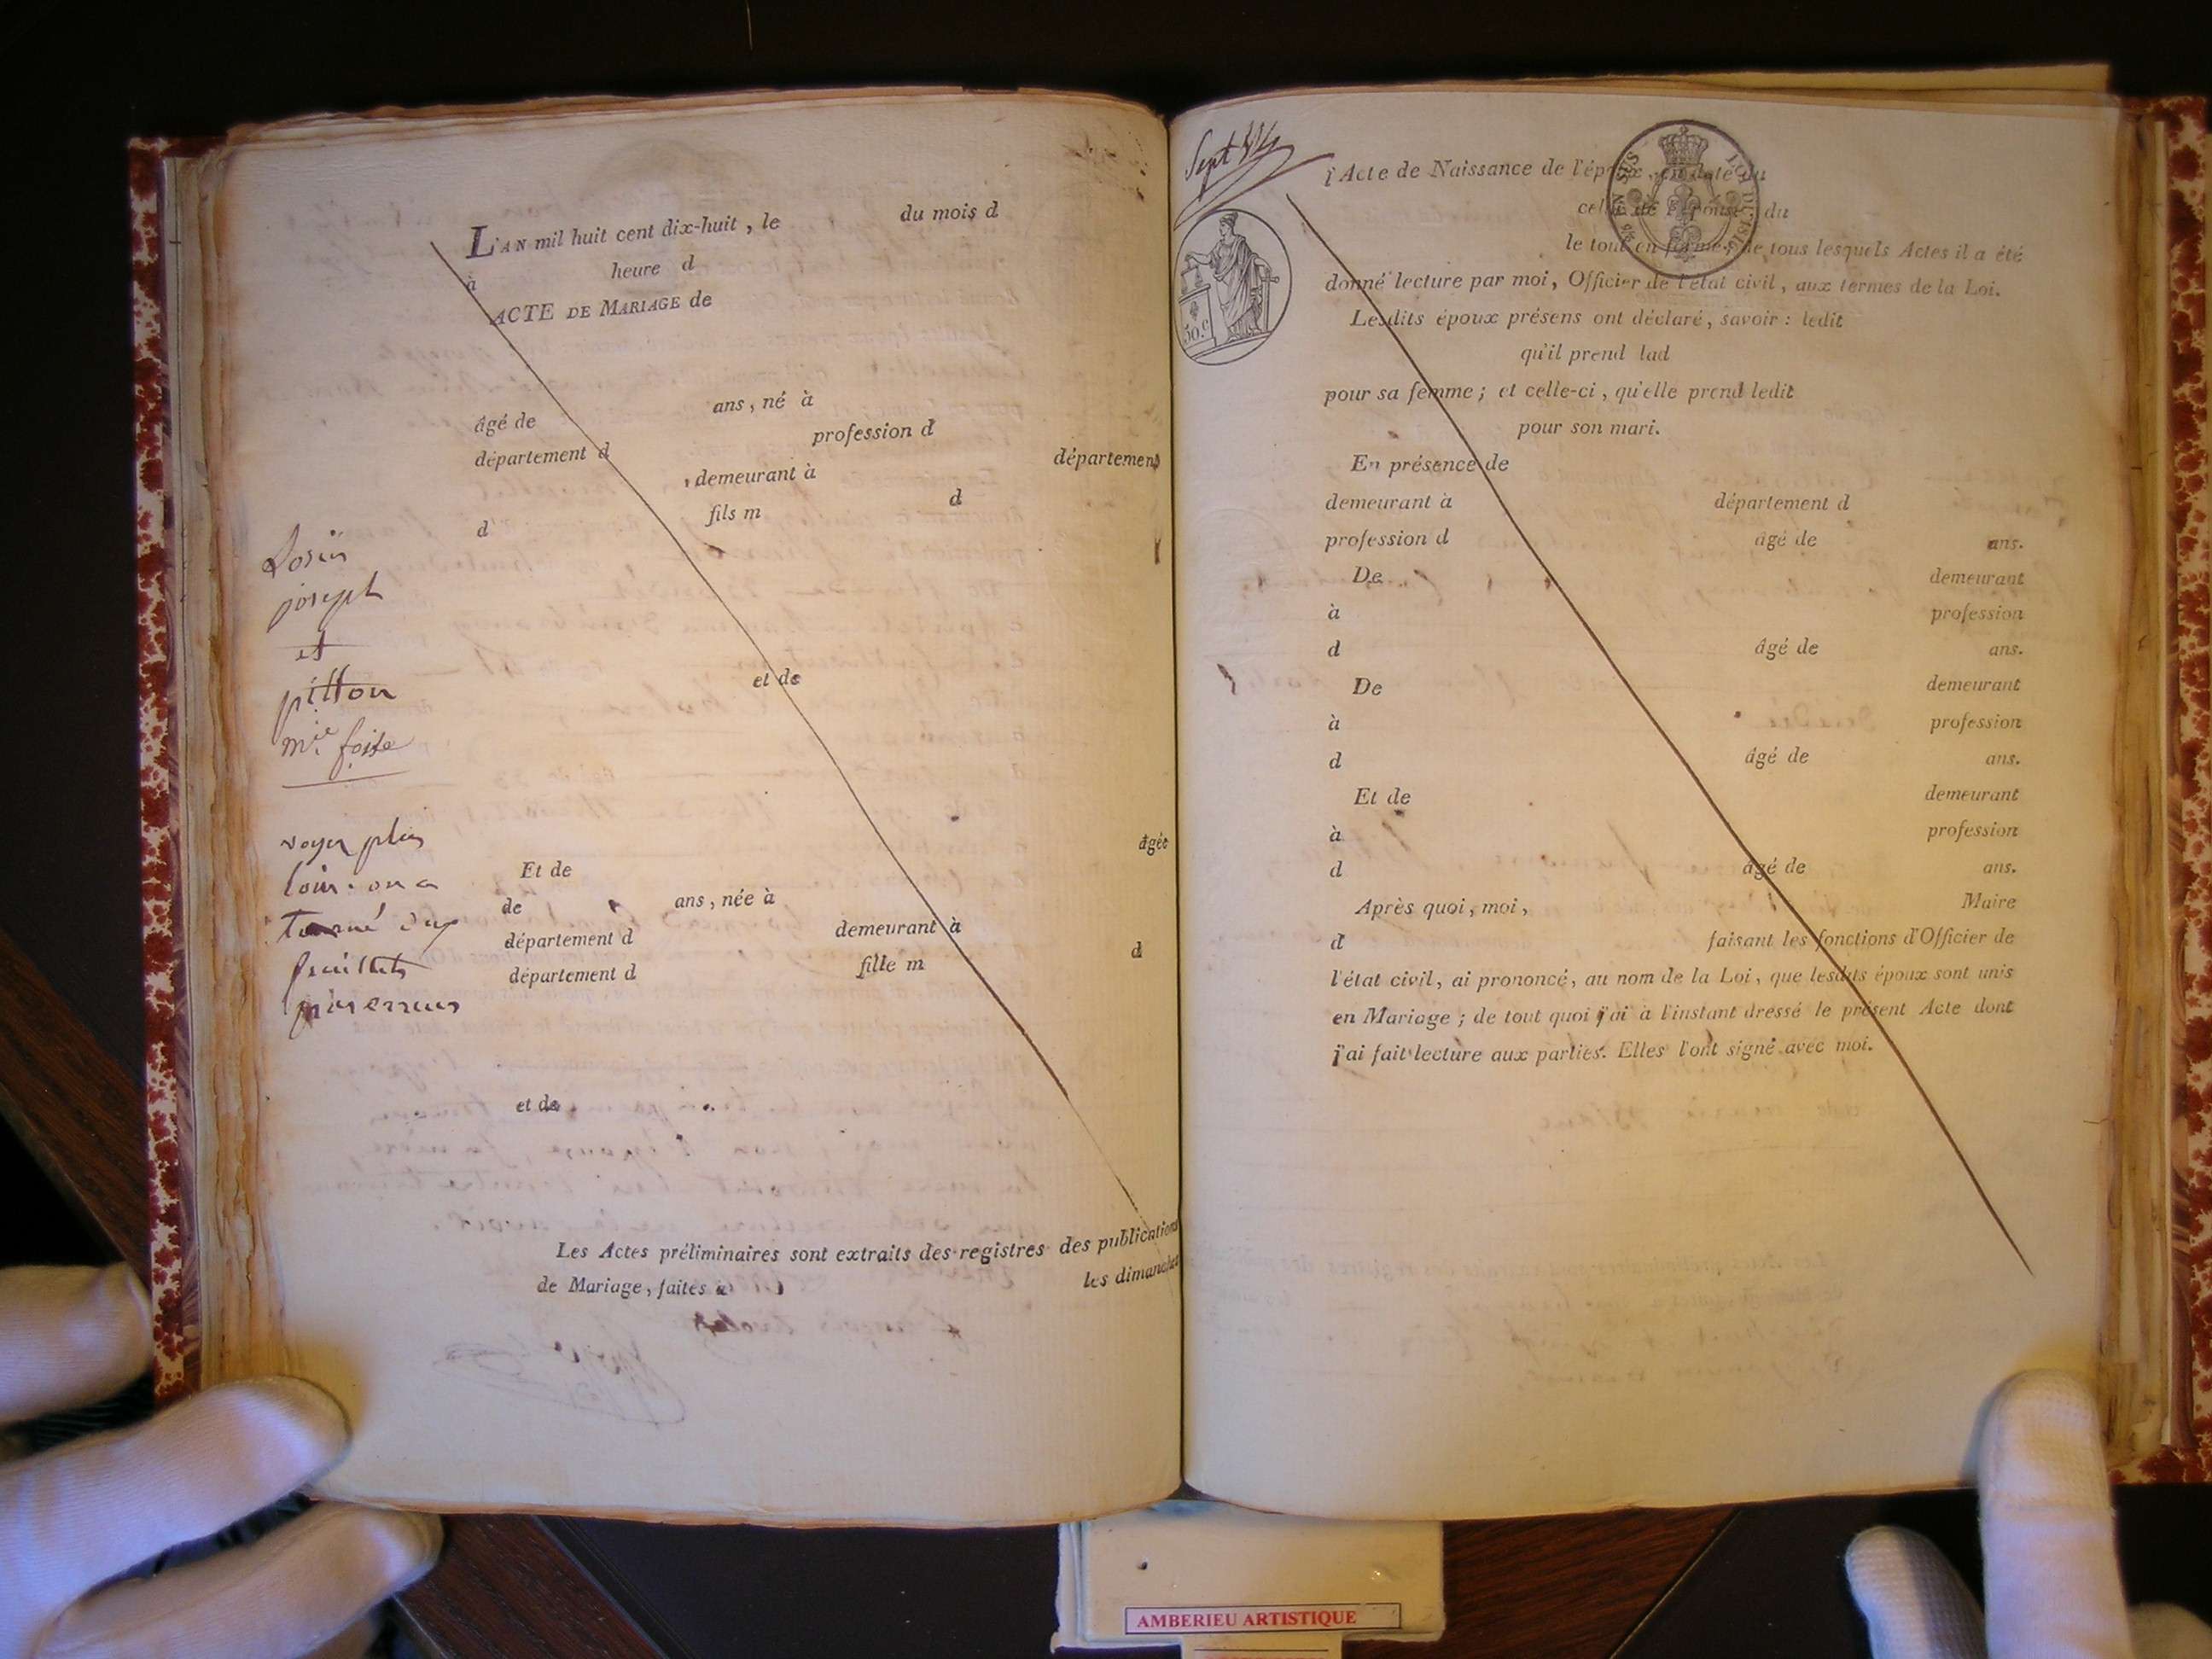 L'AN mil huit cent dix-huit, le du mois d
à heure d
ACTE DE MARIAGE de
âgé de ans, né à
département d profession d
, demeurant à département
d fils m d
et de
Et de âgée
de ans, née à
département d demeurant à
département d fille m d
et de
Les Actes préliminaires sont extraits des registres des publications
de Mariage, faites à les dimanches
joseph
et
pitton
mie
voyez plus
loin. on a
tourné deux
feuillets
par erreur
Sept
l'Acte de Naissance de l'époux, en date du
celui de l'épouse, du
le tout en forme; de tous lesquels Actes il a été
donné lecture par moi, Officier de l'état civil, aux termes de la Loi.
Lesdits époux présens ont déclaré, savoir: ledit
qu'il prend lad
pour sa femme; et celle-ci, qu'elle prend ledit
pour son mari.
En présence de
demeurant à département d
profession d âgé de ans.
De demeurant
à profession
d âgé de ans.
De demeurant
à profession
d âgé de ans.
Et de demeurant
à profession
d âgé de ans.
Après quoi, moi, Maire
d faisant les fonctions d'Officier de
l'état civil, ai prononcé, au nom de la Loi, que lesdits époux sont unis
en Mariage; de tout quoi j'ai à l'instant dressé le présent Acte dont
j'ai fait lecture aux parties. Elles l'ont signé avec moi.
50.c
EN SUS
AMBERIEU ARTISTIQUE